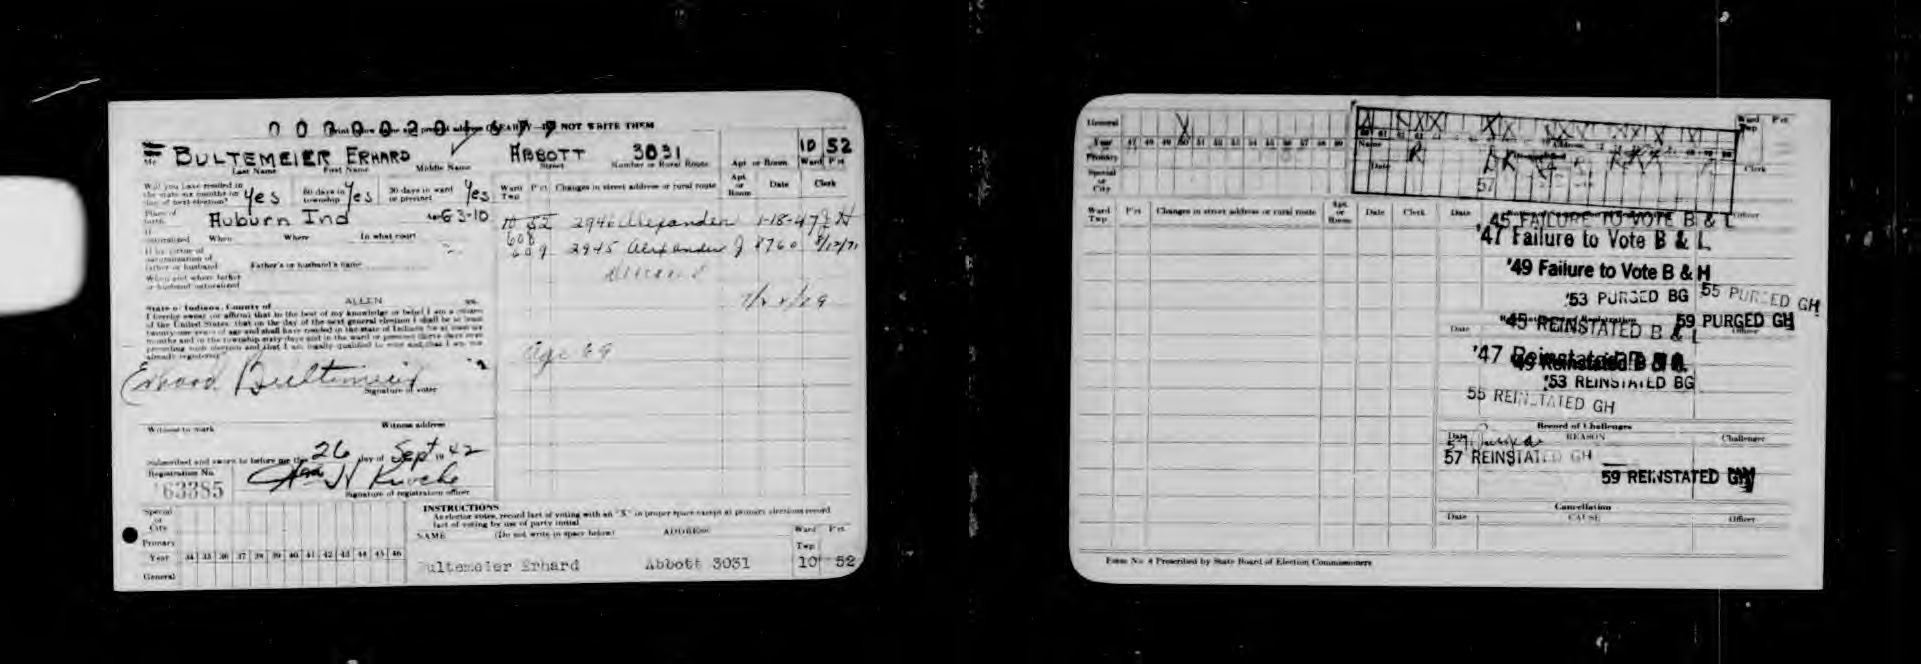 NOT WRITE THEM
Mr. BULTEMEIER ERHARD ABBOTT 3031 10 52
Last Name First Name Middle Name Street Number or Rural Route Apt. or Room Ward Pct.
Will you have resided in the state six months on day of next election? Yes 60 days in township Yes 30 days in ward or precinct Yes
Ward Twp Pct. Changes in street address or rural route Apt. or Room Date Clerk
Place of birth Auburn Ind
10 52 2940 Alexander 1-18-47
If naturalized When Where In what court
608
609 2945 Alexander
If by virtue of naturalization of father or husband Father's or husband's name
When and where father or husband naturalized
State of Indiana, County of ALLEN ss.
I hereby swear (or affirm) that to the best of my knowledge or belief I am a citizen
of the United States; that on the day of the next general election I shall be at least
twenty-one years of age and shall have resided in the state of Indiana for at least six
months and in the township sixty days and in the ward or precinct thirty days next
preceding such election and that I am legally qualified to vote and that I am not
already registered.
Age 69
Erhard Bultemeier
Signature of voter
Witness to mark Witness address
Subscribed and sworn to before me this 26 day of Sept 1942
Registration No.
163385
Signature of registration officer
Special or City
Primary
Year 34 35 36 37 38 39 40 41 42 43 44 45 46
General
INSTRUCTIONS
As elector votes, record fact of voting with an "X" in proper space except at primary elections record
fact of voting by use of party initial
NAME (Do not write in space below) ADDRESS Ward Twp Pct.
Bultemeier Erhard Abbott 3031 10 52
General
Year 47 48 49 50 51 52 53 54 55 56 57 58 59
Primary
Special or City
Ward Twp Pct.
Clerk
Ward Twp Pct. Changes in street address or rural route Apt. or Room Date Clerk Date Officer
'45 FAILURE TO VOTE B & L
'47 Failure to Vote B & L
'49 Failure to Vote B & H
'53 PURGED BG
55 PURGED GH
59 PURGED GH
Date Officer
'45 REINSTATED B & L
'47 Reinstated
'49 Reinstated
'53 REINSTATED BG
55 REINSTATED GH
Record of Challenges
Date REASON Challenger
57 Purged
57 REINSTATED GH
59 REINSTATED
Cancellation
Date CAUSE Officer
Form No. 4 Prescribed by State Board of Election Commissioners